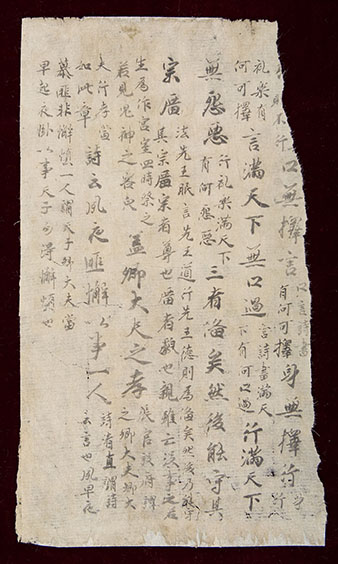 不行口無擇言口言詩書
有何可擇身無擇行身行
礼樂有
何可擇言滿天下無口過言詩書滿天
下有何口過行滿天下
無怨惡行礼樂滿天下
有何怨惡三者備矣然後能守其
宗廟法先王服言先王道行先王德則為備矣
其宗廟宗者尊也廟者貌也親雖亡沒事之若
生為作宮室四時祭之
若見鬼神之容皃蓋卿大夫之孝張官設府謂
之卿大夫卿大
夫行孝當
如此章詩云夙夜匪懈以事一人詩者直謂詩
云言也夙早夜
暮匪非懈惰一人謂天子卿大夫當
早起夜卧以事天子勿得懈惰也